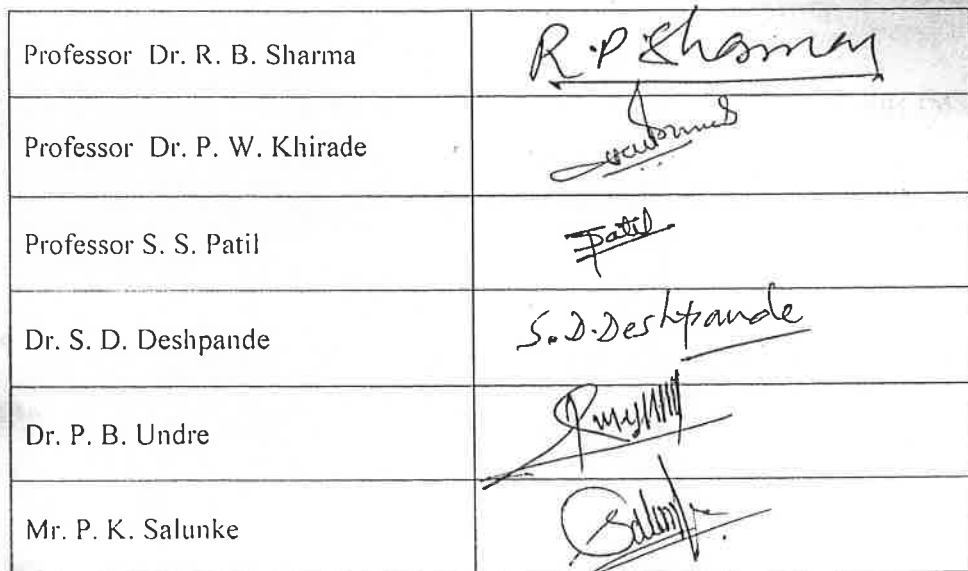 Professor Dr. R. B. Sharma
R.P. Sharma
Professor Dr. P. W. Khirade
Professor S. S. Patil
Patil
Dr. S. D. Deshpande
S. D. Deshpande
Dr. P. B. Undre
Mr. P. K. Salunke